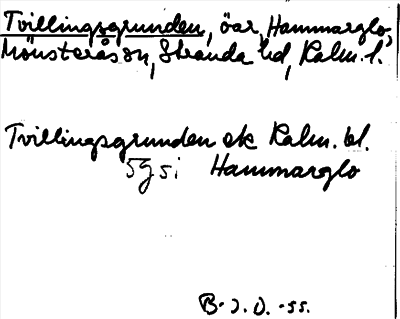 Tvillingsgrunden, öar, Hammarglo,
Mönsterås sn, Stranda hd, Kalm. l.
Tvillingsgrunden ek Kalm. bl.
5g si Hammarglo
B. J. O. -55.